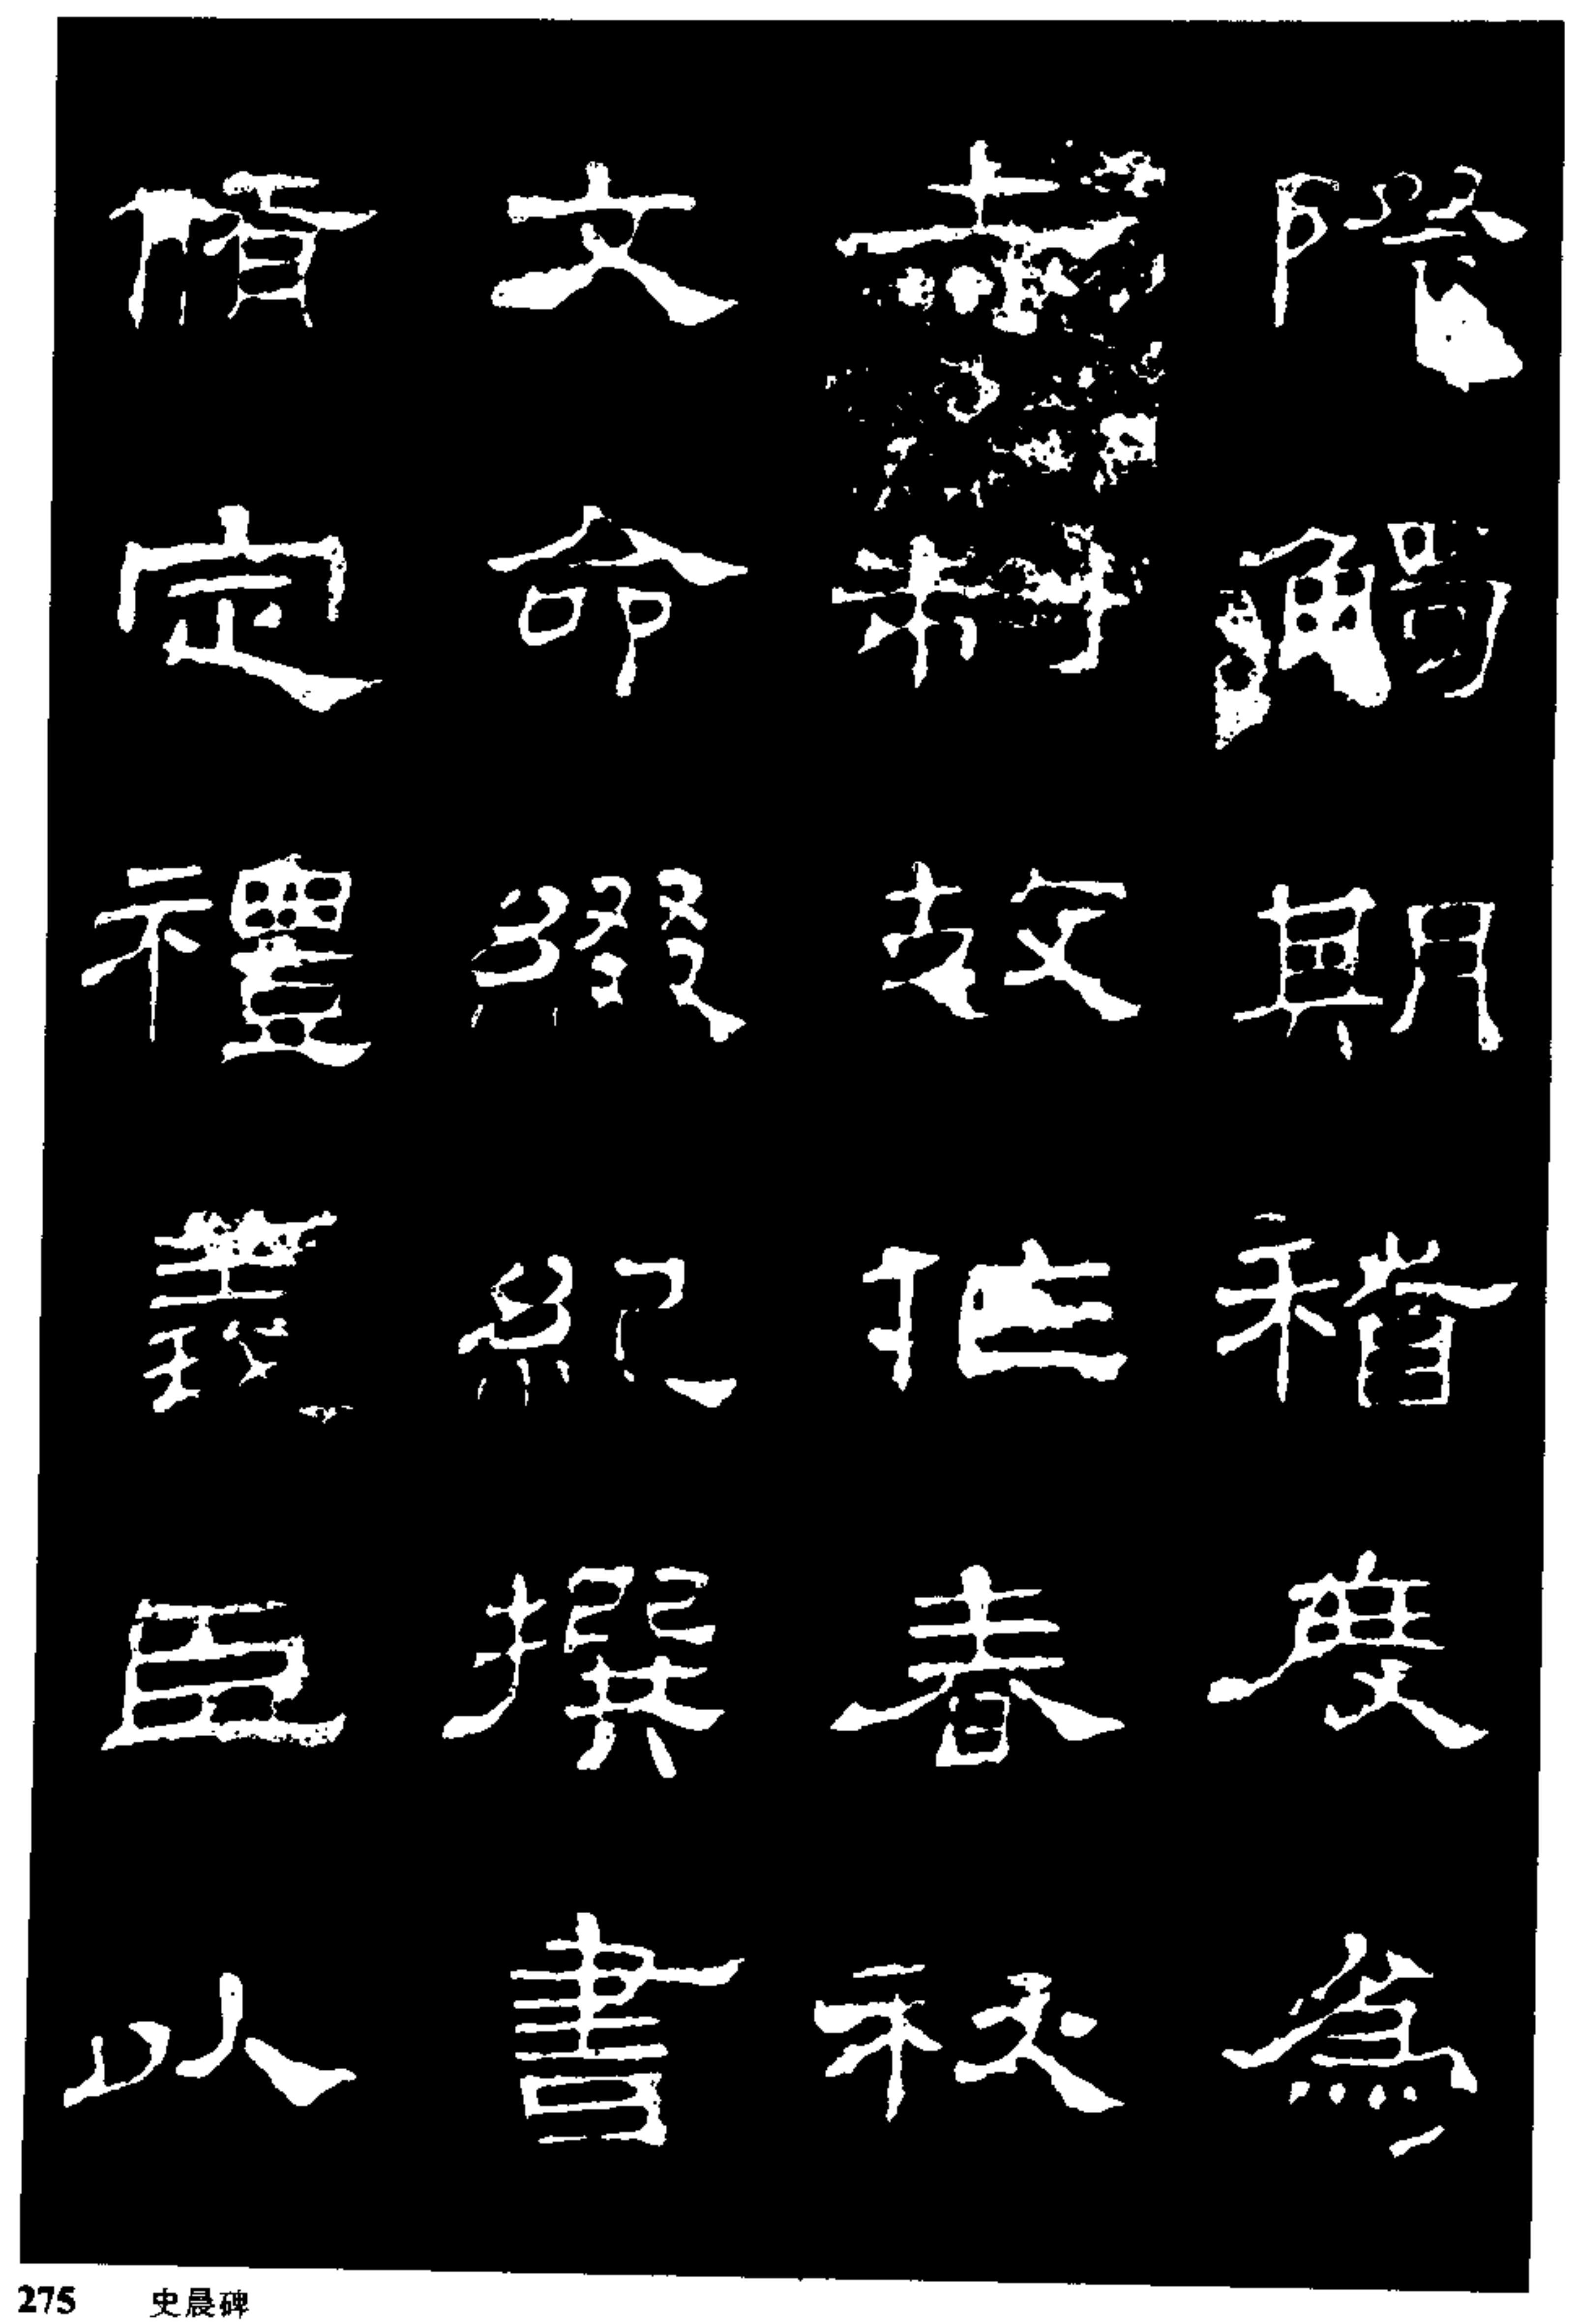 際觸期稽度為
赤制故作春秋
文命綴紀撰書
脩定禮義臣以
275 史晨碑